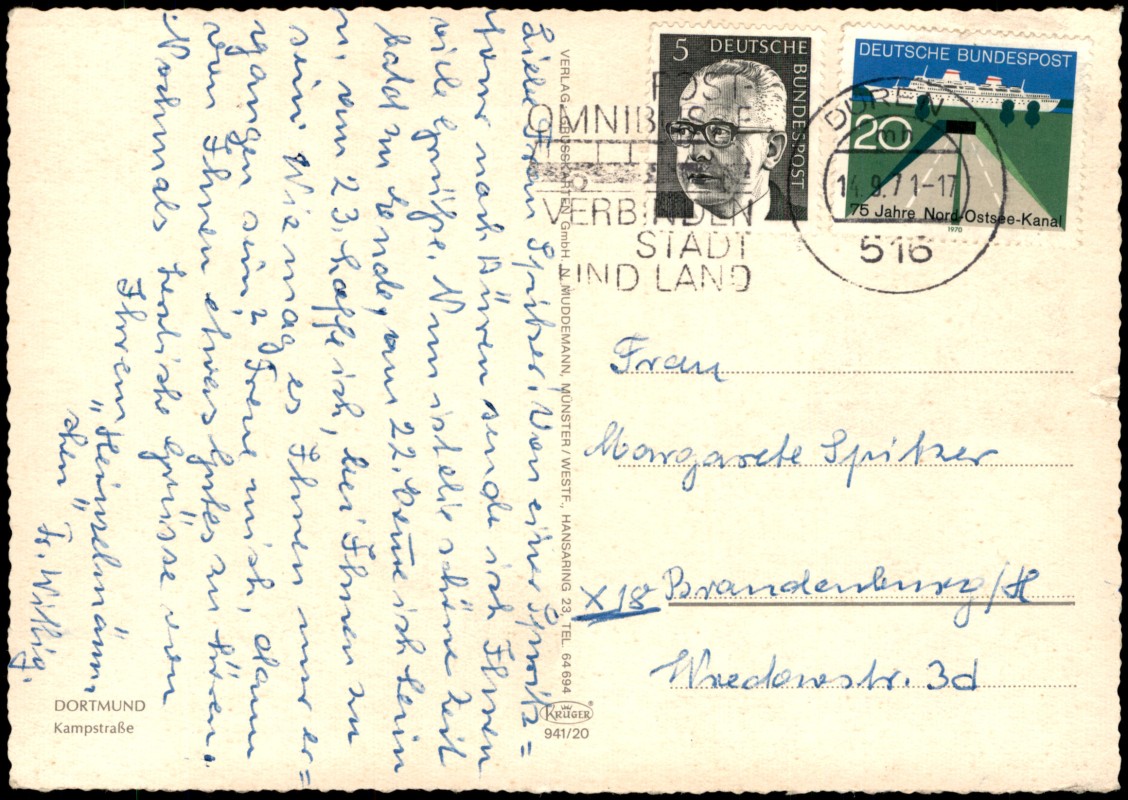 5 DEUTSCHE BUNDESPOST
DEUTSCHE BUNDESPOST
20
75 Jahre Nord-Ostsee-Kanal
1970
POST-
OMNIBUSSE
VERBINDEN
STADT
UND LAND
DÜREN
mh
14.9.71-17
516
Liebe Frau Spitzer! Von einer Spritz=
tour nach Düren sende ich Ihnen
viele Grüße. Nun ist die schöne Zeit
bald zu Ende, am 22. bin ich
am 23. hoffe ich, bei Ihnen zu
sein. Wie mag es Ihnen nur er=
gangen sein? Freue mich, dann
von Ihnen etwas Gutes zu hören.
Nochmals herzliche Grüsse von
Ihrem
„Heinzelmänn-
chen"
Fr. Wittig.
VERLAG GRUSSKARTEN GmbH. N. MUDDEMANN, MÜNSTER/WESTF., HANSARING 23, TEL. 64694
Frau
Margarete Spitzer
X18 Brandenburg/H
Wredowstr. 3d
DORTMUND
Kampstraße
KRÜGER®
941/20